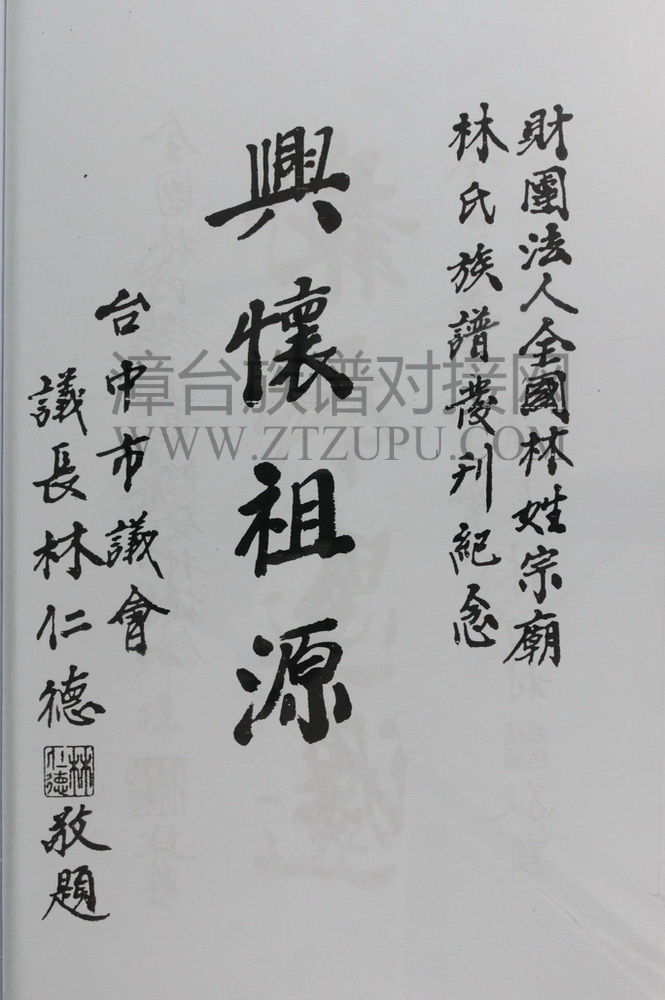 財團法人全國林姓宗廟
林氏族譜發刊紀念
興懷祖源
台中市議會
議長林仁德
林仁德
敬題
漳台族谱对接网
WWW.ZTZUPU.COM